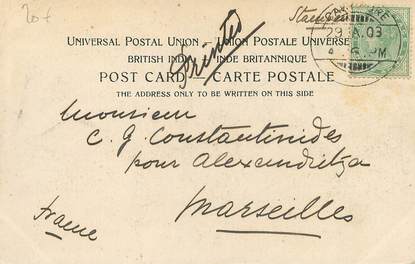 20f
UNIVERSAL POSTAL UNION. UNION POSTALE UNIVERSE
BRITISH INDI INDE BRITANNIQUE
Printed
POST CARD CARTE POSTALE
THE ADDRESS ONLY TO BE WRITTEN ON THIS SIDE
29 A. 03
Monsieur
C. G. Constantinides
pour Alexandretza
Marseilles
France